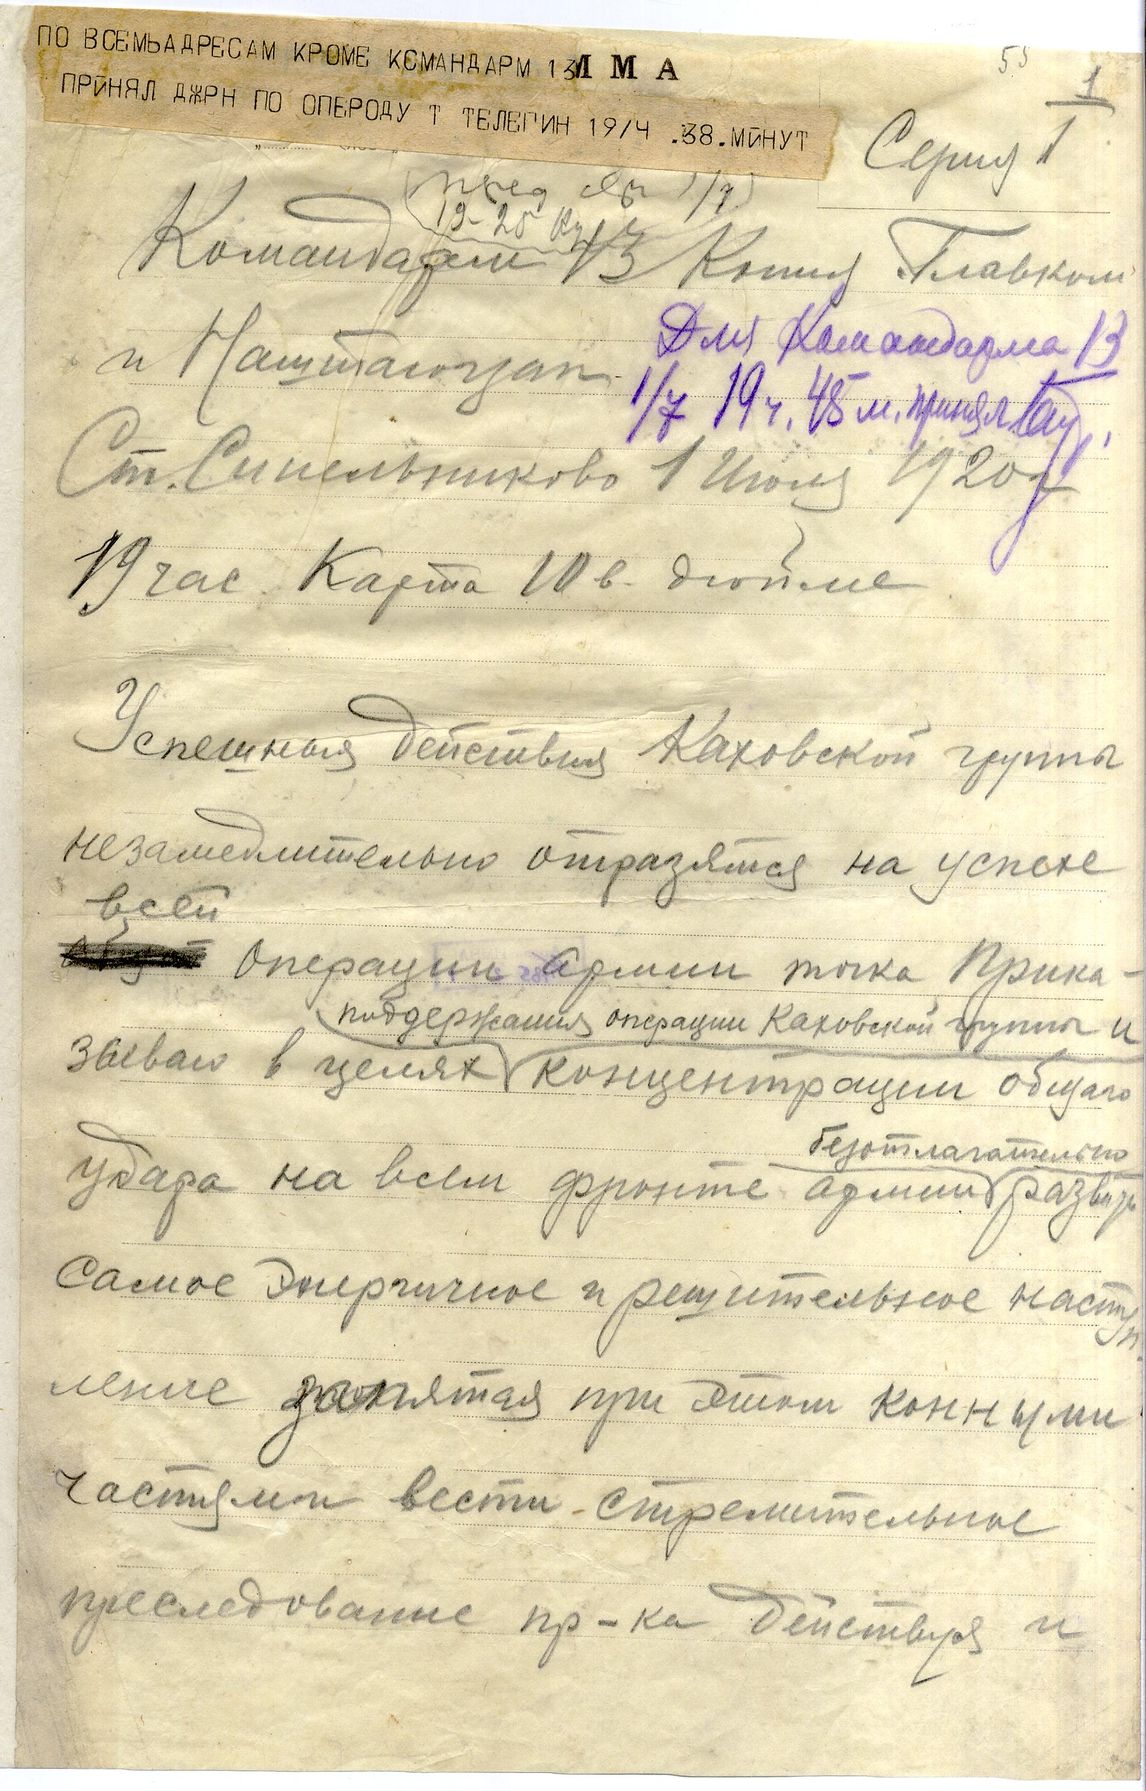 ПО ВСЕМЬАДРЕСАМ КРОМЕ КСМАНДАРМ 13 ММА
ПРИНЯЛ ДЖРН ПО ОПЕРОДУ Т ТЕЛЕГИН 19/Ч .38.МИНУТ
55
1
Серия 1
1/7
19-25
Командарм 13 Копия Главком
и Наштаюзап
Для Командарма 13
1/7 19ч. 45 м. принял
Ст. Синельниково 1 Июля 1920г
19 час Карта 10 в дюйме
Успешныя действия Каховской группы
незамедлительно отразятся на успехе
всей
операции армии точка Прика-
поддержания операции Каховской группы и
зываю в целях концентрации общаго
безотлагательно
удара на всем фронте армии развить
самое энергичное и решительное наступ
ление зпт при этом конными
частями вести стремительное
преследование пр-ка действуя и